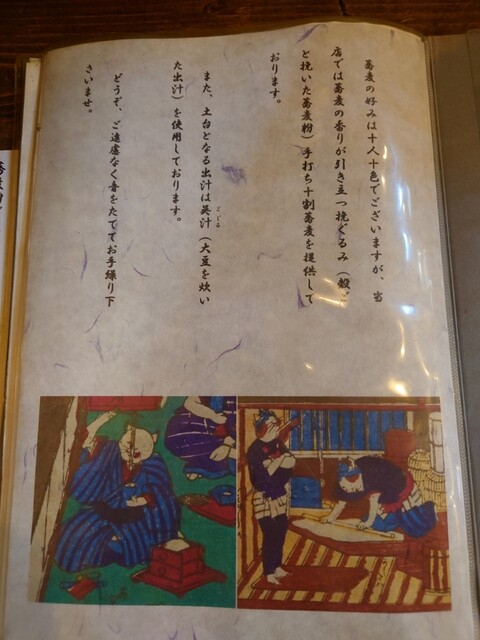 蕎麦の好みは十人十色でございますが、当
店では蕎麦の香りが引き立つ挽ぐるみ（殻ご
と挽いた蕎麦粉）手打ち十割蕎麦を提供して
おります。
また、土台となる出汁は呉汁（大豆を炊い
ごじる
た出汁）を使用しております。
どうぞ、ご遠慮なく音をたててお手繰り下
さいませ。